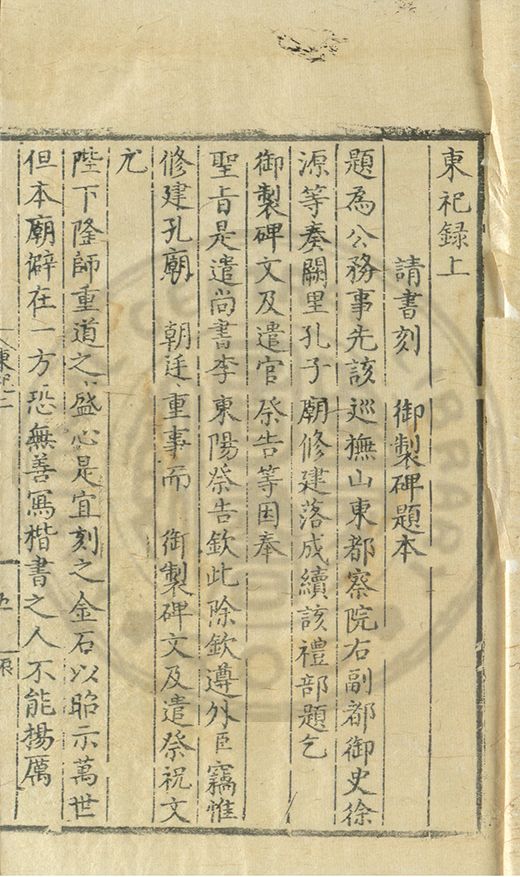 東祀録上
請書刻　御製碑題本
題為公務事先該巡撫山東都察院右副都御史徐
源等奏闕里孔子廟修建落成續該禮部題乞
御製碑文及遣官祭告等因奉
聖旨是遣尚書李東陽祭告欽此除欽遵外臣竊惟
修建孔廟　朝廷重事而　御製碑文及遣祭祝文
尤
陛下隆師重道之盛心是宜刻之金石以昭示萬世
但本廟僻在一方恐無善寫楷書之人不能揚厲